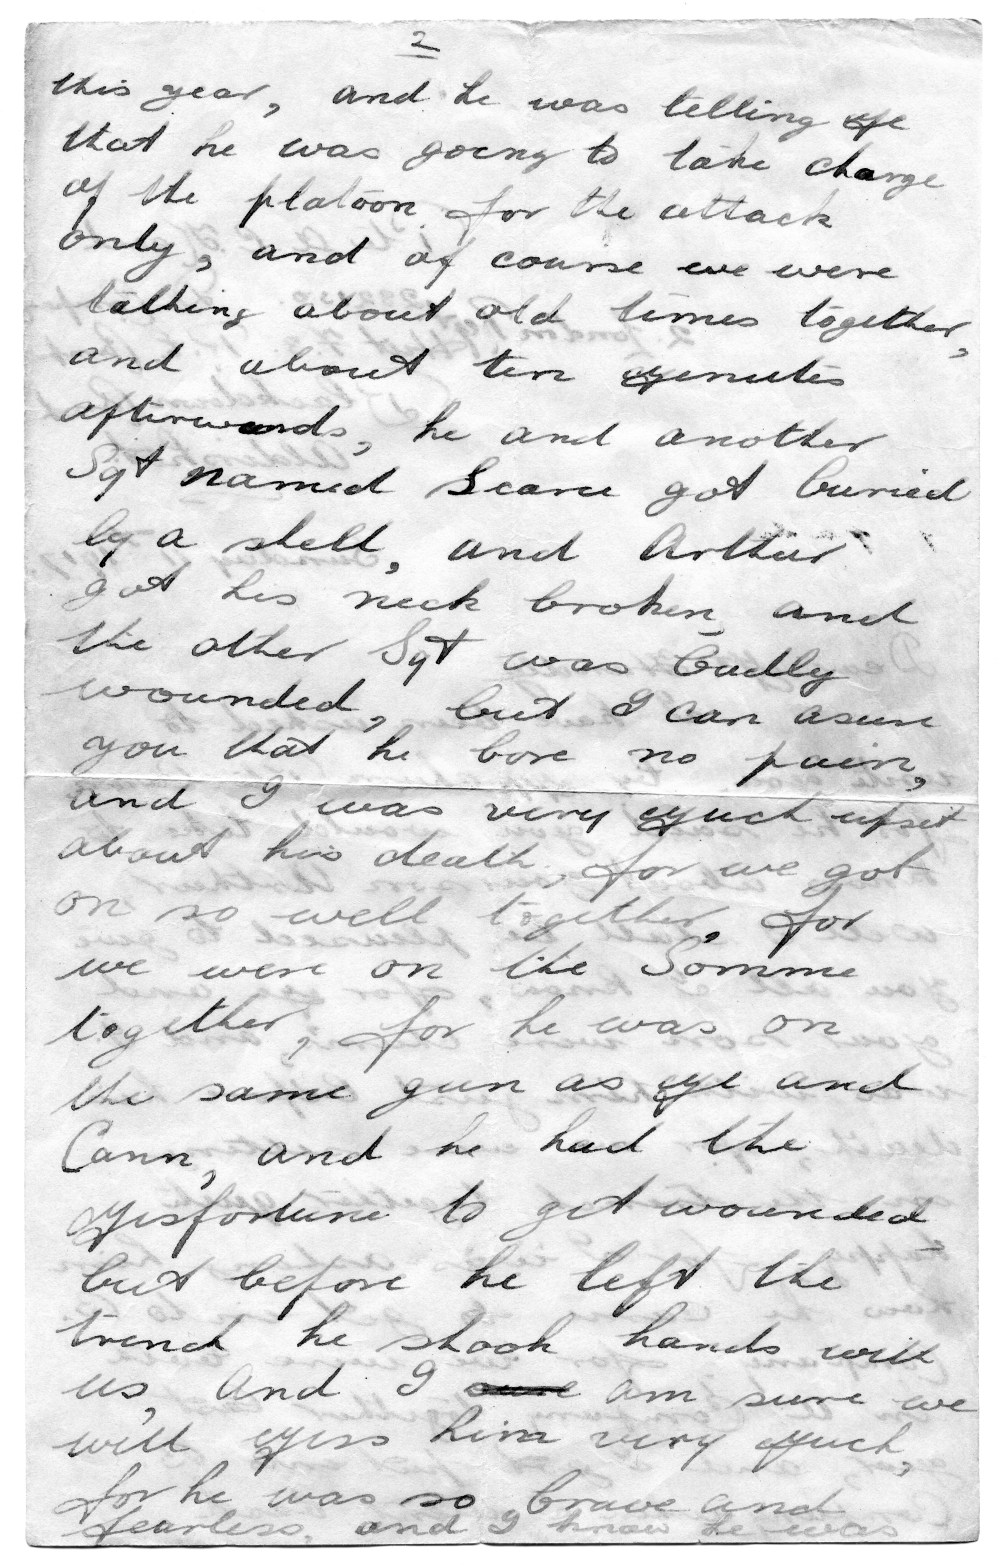 2
this year, and he was telling me
that he was going to take charge
of the platoon for the attack
only, and of course we were
talking about old times together,
and about ten minutes
afterwards, he and another
Sgt named Scarce got buried
by a shell, and Arthur
got his neck broken, and
the other Sgt was badly
wounded, but I can asure
you that he bore no pain,
and I was very much upset
about his death, for we got
on so well together, for
we were on the Somme
together, for he was on
the same gun as me and
Cann, and he had the
misfortune to get wounded,
but before he left the
trench he shook hands with
us, and I am sure we
will miss him very much,
for he was so brave and
fearless, and I know he was